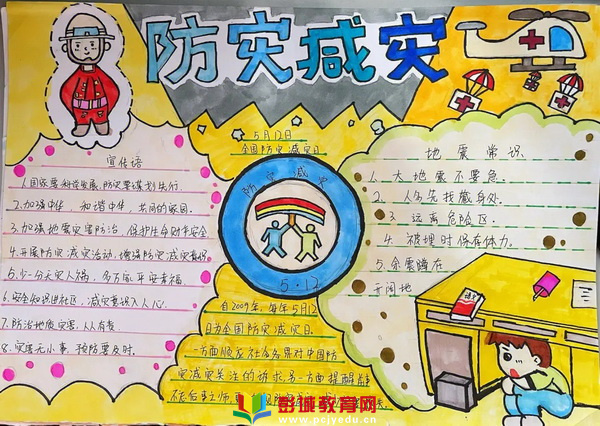 防灾减灾
5月12日
全国防灾减灾日
宣传语
1.国家要科学发展，防灾要谋划先行。
2.加强中华，和谐中华，共同的家园。
3.加强地震灾害防治，保护生命财产安全
4.开展防灾减灾活动，增强防灾减灾意识
5.少一分天灾人祸，多万家平安幸福
6.安全知识进社区，减灾意识入人心。
7.防治地质灾害，人人有责
8.灾害无小事，预防要及时.
防灾减灾
5·12
自2009年，每年5月12
日为全国防灾减灾日.
一方面顺应社会各界对中国防
灾减灾关注的诉求另一方面提醒
地震常识
1.大地震不要急.
2.人多先找藏身处.
3.远离危险区.
4.被埋时保存体力.
5.余震蹲在
开阔地
彭城教育网
www.pcjyedu.cn